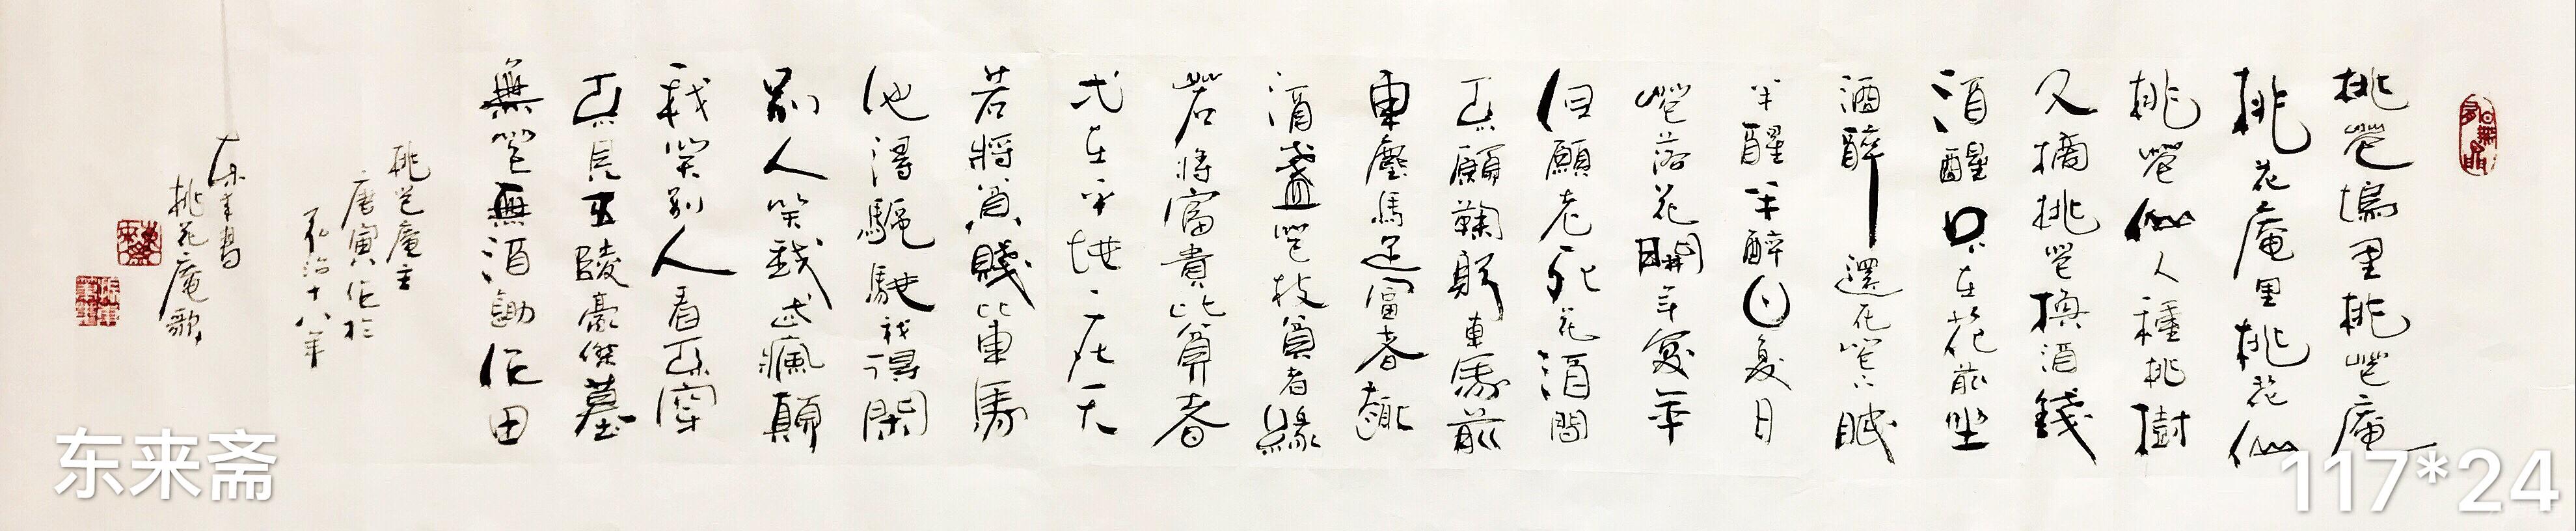 桃花塢里桃花庵
桃花庵里桃花仙
桃花仙人種桃樹
又摘桃花換酒錢
酒醒只在花前坐
酒醉還在花下眠
半醒半醉日復日
花落花開年復年
但願老死花酒間
不願鞠躬車馬前
車塵馬足富者趣
酒盞花枝貧者緣
若將富貴比貧者
弌在平地一在天
若將貧賤比車馬
他得驅馳我得閑
別人笑我忒瘋顛
我笑別人看不穿
不見五陵豪傑墓
無花無酒鋤作田
桃花庵主
唐寅作於
弘治十八年
东来書
桃花庵歌
东来斋
117*24